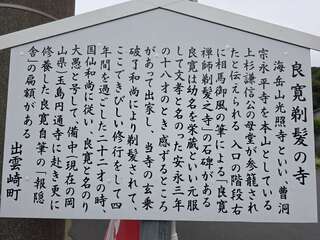 良寛剃髪の寺
海岳山光照寺といい、曹洞
宗永平寺を本山としている
上杉謙信公の母堂が参籠され
たと伝えられる 入口の階段右
に相馬御風の筆による「良寛
禅師剃髪之寺」の石碑がある
良寛は幼名を栄蔵といい元服
して文孝と名のった安永三年
の十八才のとき感ずるところ
があって出家し、当寺の玄乗
破了和尚により剃髪されて、
ここできびしい修行をして四
年間を過ごした二十二才の時、
国仙和尚に従い、良寛と名のり
大愚と号して、備中(現在の岡
山県)玉島円通寺に赴き更に
修養した 良寛自筆の「報隠
舎」の扁額がある
出雲崎町